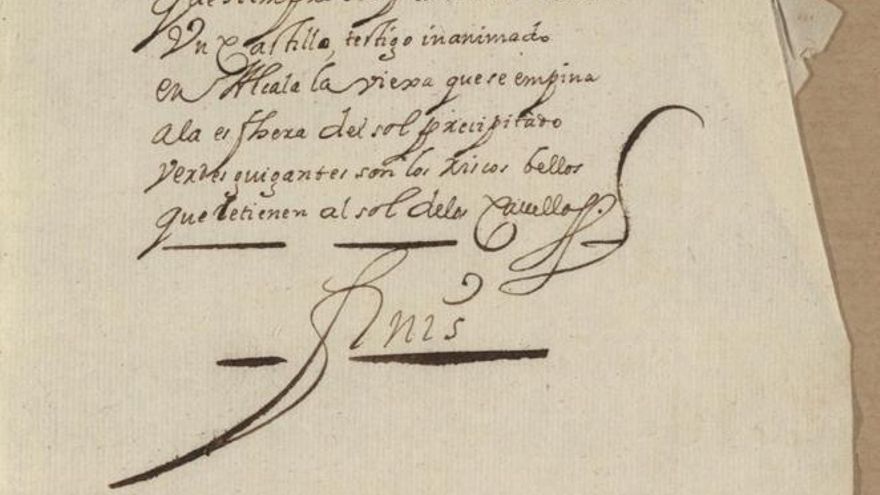 Un Castillo, testigo inanimado
en Alcala la viexa que se empina
a la esfhera del sol precipitado
verdes guigantes son los riscos bellos
que detienen al sol de los Cauellos.
finis